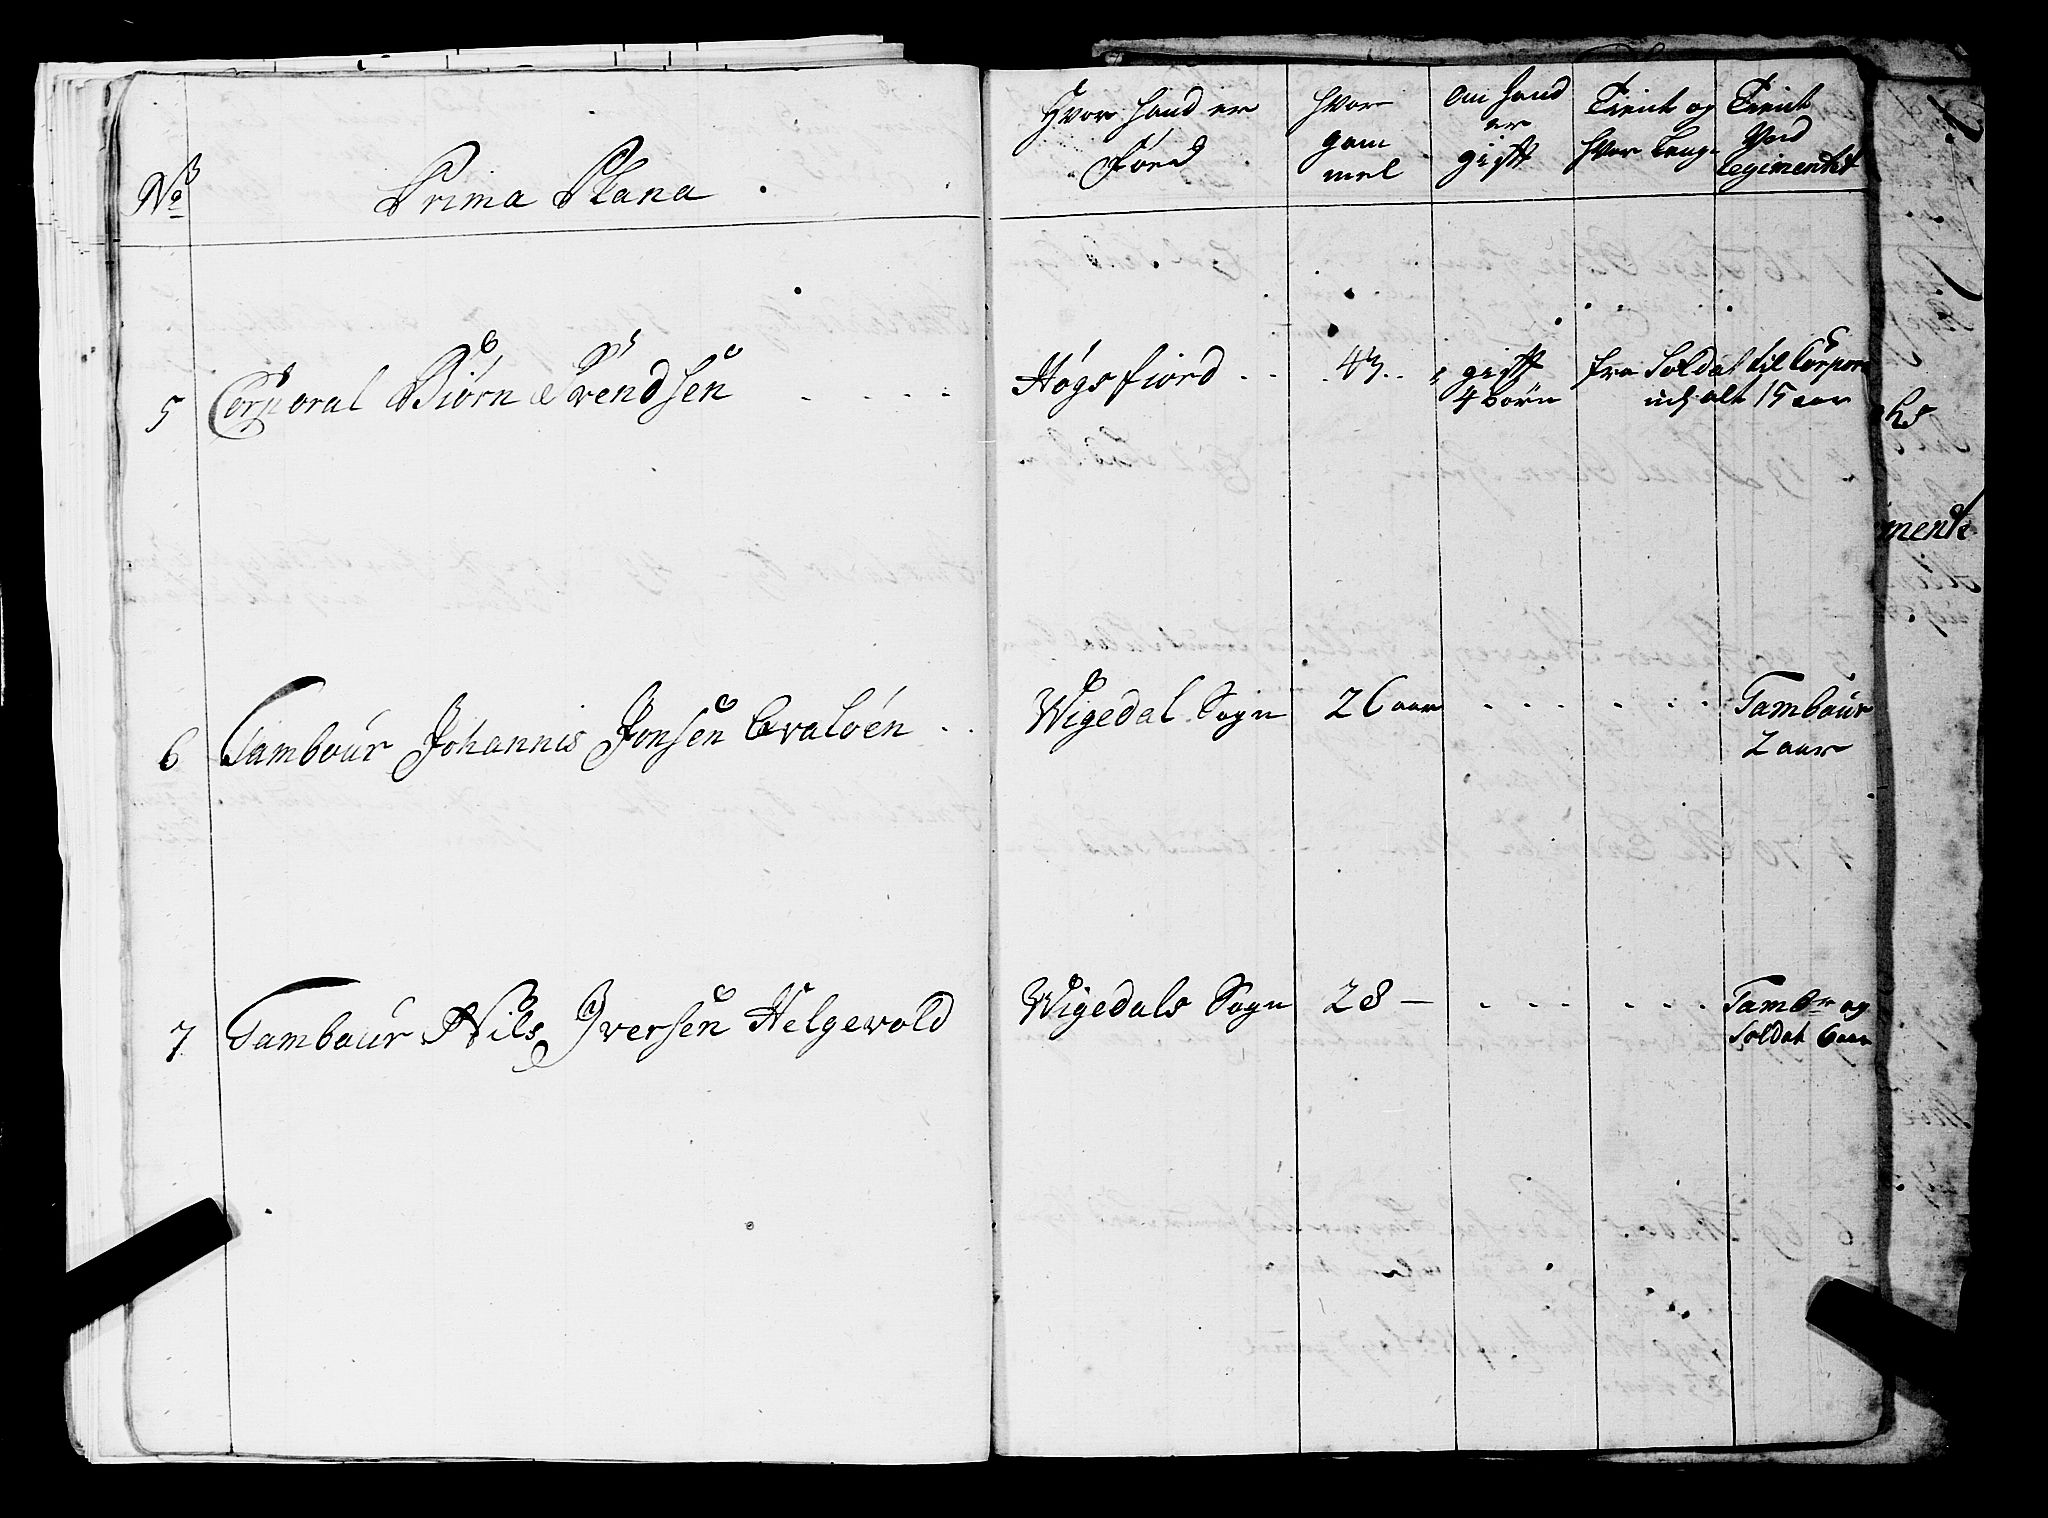 No
Prima Plana
Hvor hand er
Föed
hvor
gam
mel
om hand
er
gift
Tient og
hvor Leng
Tient
Ved
Regimentet
5 Corporal Biörn Svendsen
Högsfiord
43
gift
4 börn
fra Soldat til Corpor
udj alt 15 aar
6 Tambour Johannis Jonsen
Wigedal Sogn
26 aar
Tambour
2 aar
7 Tambour Nils Iversen Helgevold
Wigedals Sogn
28 –
Tambr og
Soldat 6 aar